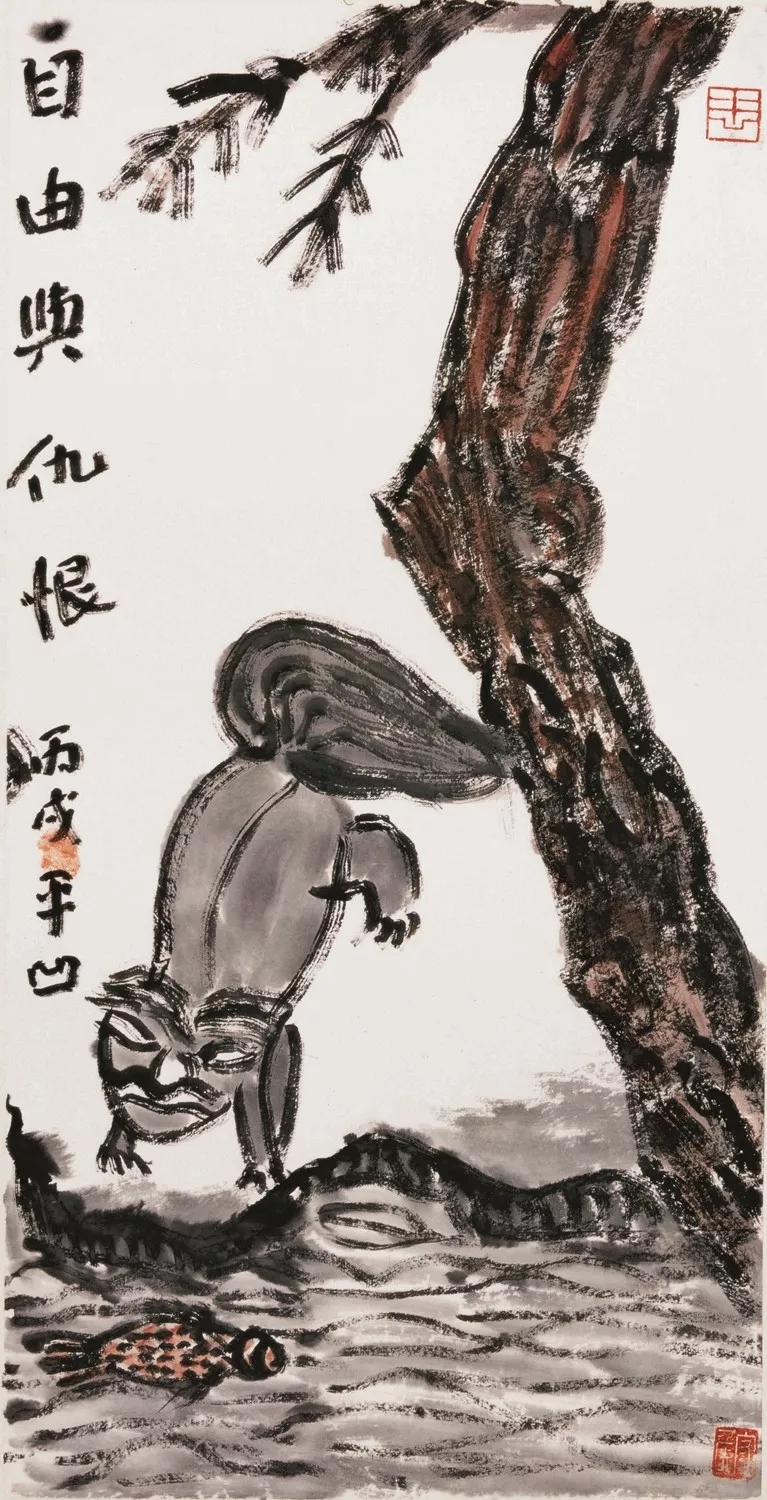 自由與仇恨 丙戌 平凹